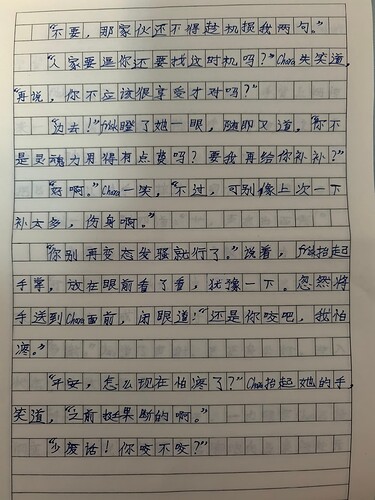 “不要，那家伙还不得趁机损我两句。”
“人家要逗你还要找这时机吗？”Chara失笑道，
“再说，你不应该很享受才对吗？”
“边去！”frisk瞪了她一眼，随即又道，“你不
是灵魂力用得有点莫吗？要我再给你补补？”
“好啊。”Chara一笑，“不过，可别像上次一下
补太多，伤身啊。”
“你别再变态发骚就行了。”说着，frisk抬起
手掌，放在眼前看了看，犹豫一下。忽然将
手送到Chara面前，闭眼道！“还是你咬吧，我怕
疼。”
“平安，怎么现在怕疼了？”Chara抬起她的手，
笑道，“之前挺果断的啊。”
“少废话！你咬不咬？”